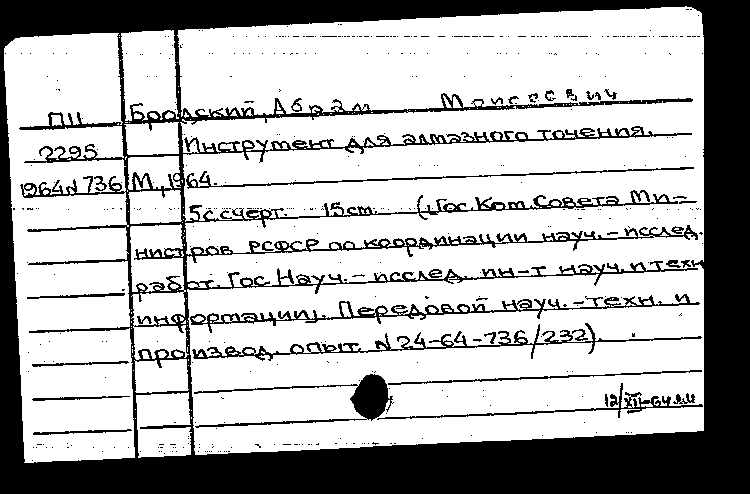 ПII Бродский, Абрам Моисеевич
2295 Инструмент для алмазного точения.
1964 N 736 М., 1964.
5с.счерт. 15см. (Гос.Ком.Совета Ми-
нистров РСФСР по координации науч.-исслед.
работ. Гос.Науч.-исслед. ин-т науч. и техн
информации). Передовой науч.-техн. и
производ. опыт. N 24-64-736/232).
12/XII-64